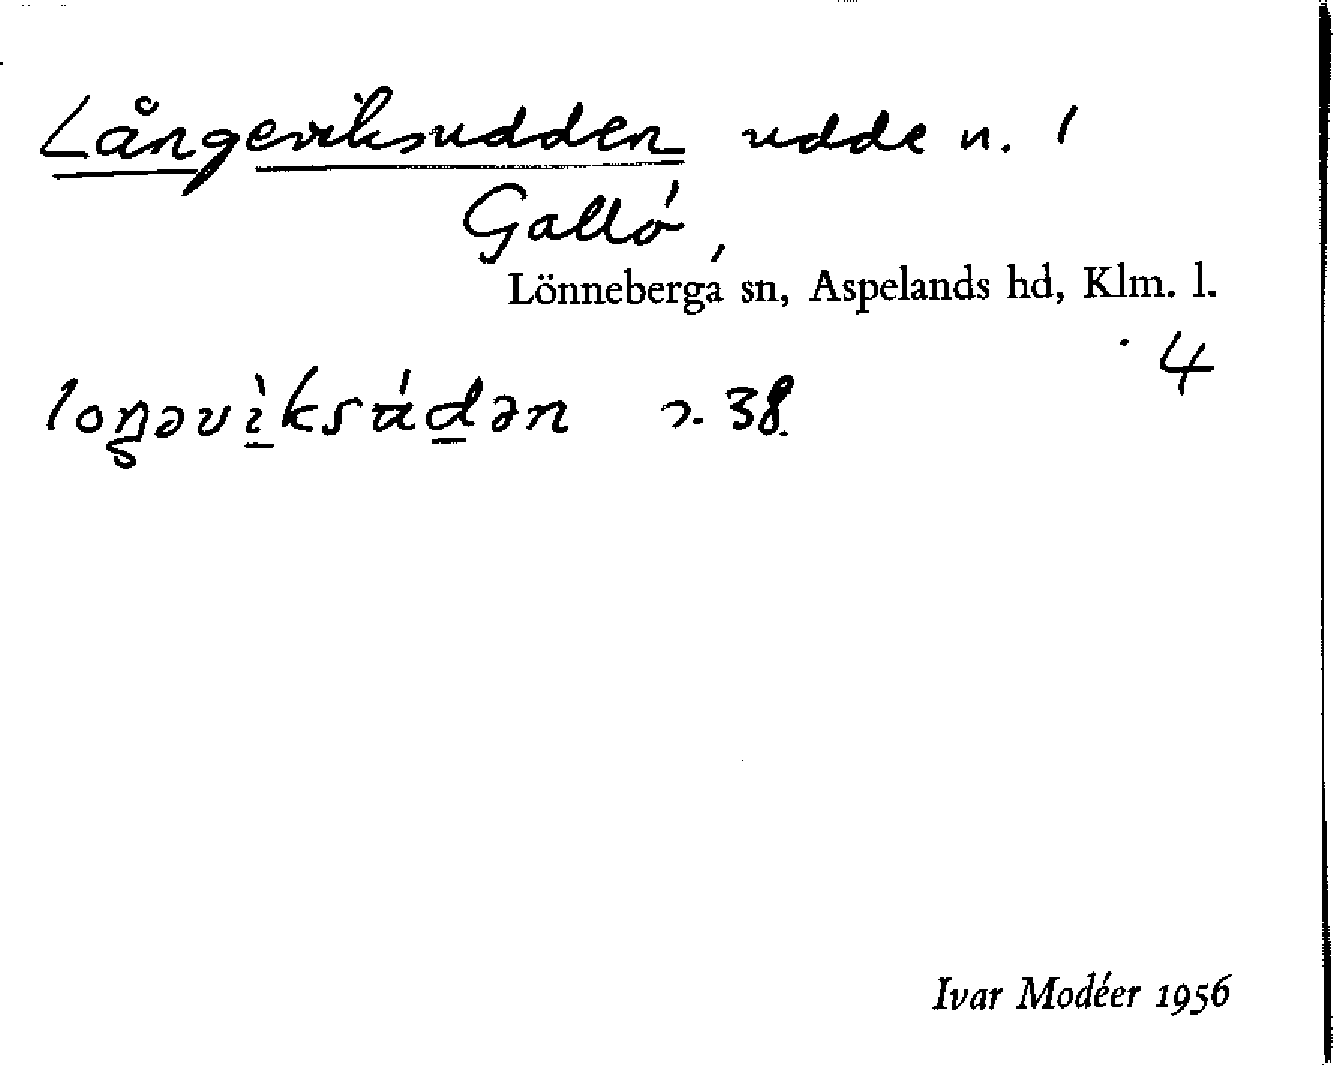 Långeviksudden udde n. 1
Gallö,
Lönneberga sn, Aspelands hd, Klm. l.
4
loŋəvìksádən 2. 38.
Ivar Modéer 1956